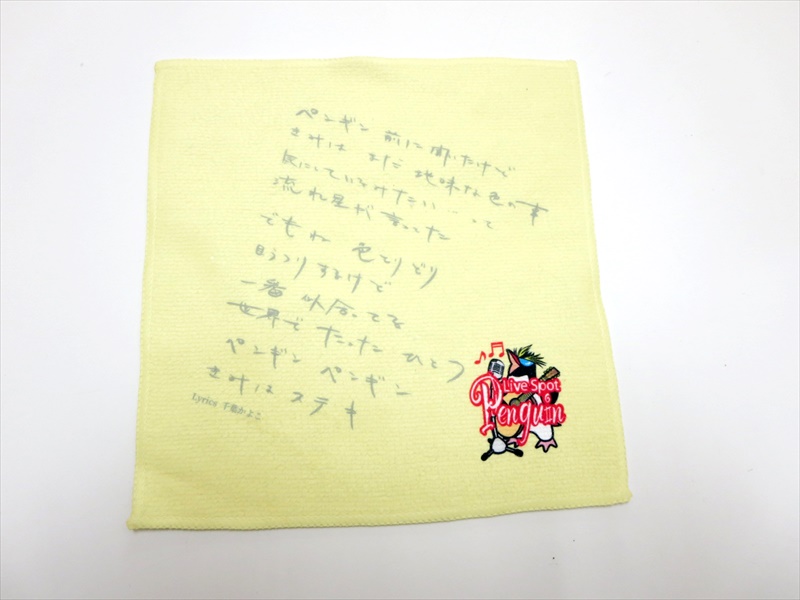 ペンギン 前に聞いたけど
きみは まだ 地味な色の事
気にしているみたい‥って
流れ星が言ってた
でもね 色とりどり
目うつりするけど
一番 似合ってる
世界で たったひとつ
ペンギン ペンギン
きみは ステキ
Lyrics かよこ
Live Spot
6
Penguin